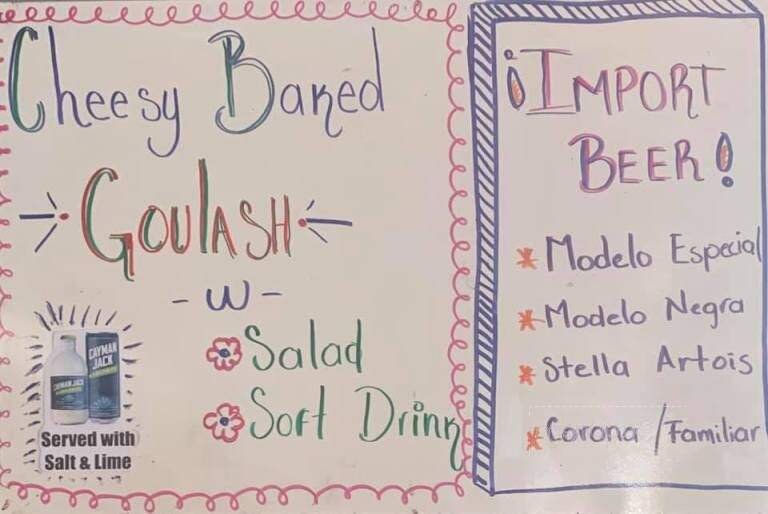 Cheesy Baked
GOULASH
- W -
Salad
Soft Drink
CAYMAN
JACK
CAYMAN JACK
Served with
Salt & Lime
¡IMPORT
BEER!
* Modelo Especial
* Modelo Negra
* Stella Artois
* Corona / Familiar